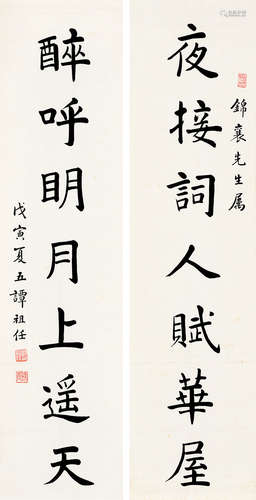 錦襄先生属
夜接詞人賦華屋
醉呼明月上遥天
戊寅夏五譚祖任